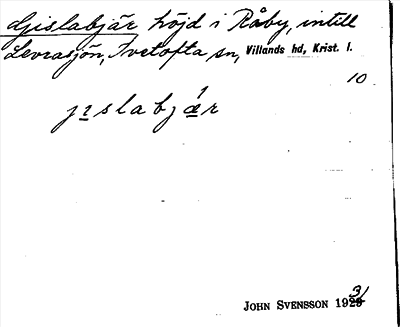 Gislabjär höjd i Råby, intill
Levrasjön, Ivetofta sn, Villands hd, Krist. l.
10
jɪslabjǽr
JOHN SVENSSON 1931